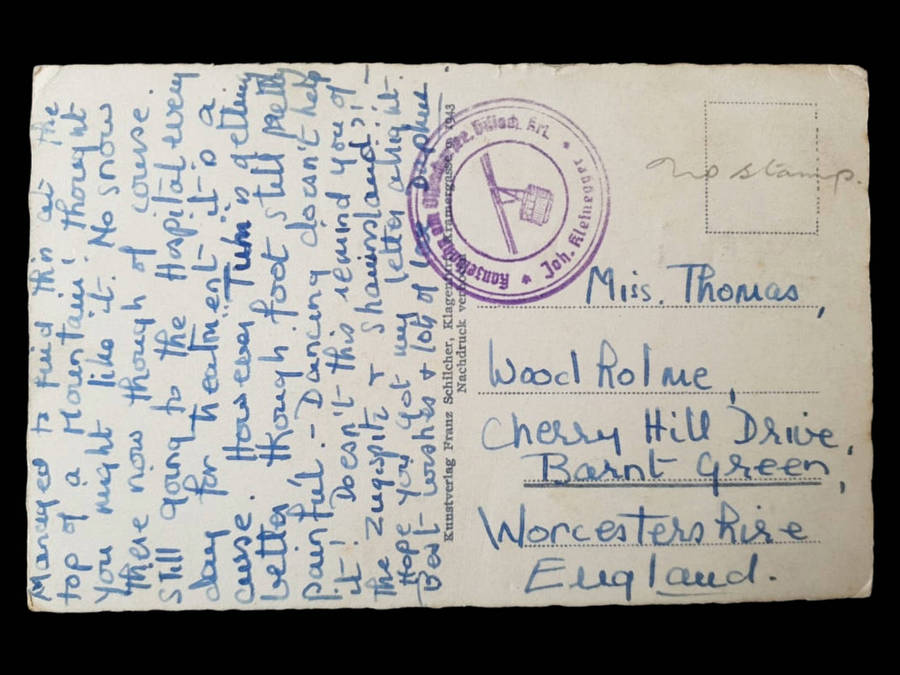 Managed to find this at the
top of a Mountain! thought
you might like it. No snow
there now though of course.
Still going to the Hospital every
day for treatment it is a
curse. However Tum is getting
better though foot still pretty
painful. - Dancing doesn't help
it! Doesn't this remind you of
the Zugspitz & Shainsland? -
Hope you got my letter alright.
Best wishes & lots of love Daphne
Kunstverlag Franz Schilcher, Klagenfurt, Kramergasse 1943
Nachdruck
Kanzelbahn am
Villach, Krt.
Joh. Kleinegger
No stamp.
Miss. Thomas,
Wood Holme,
Cherry Hill Drive,
Barnt Green,
Worcestershire
England.